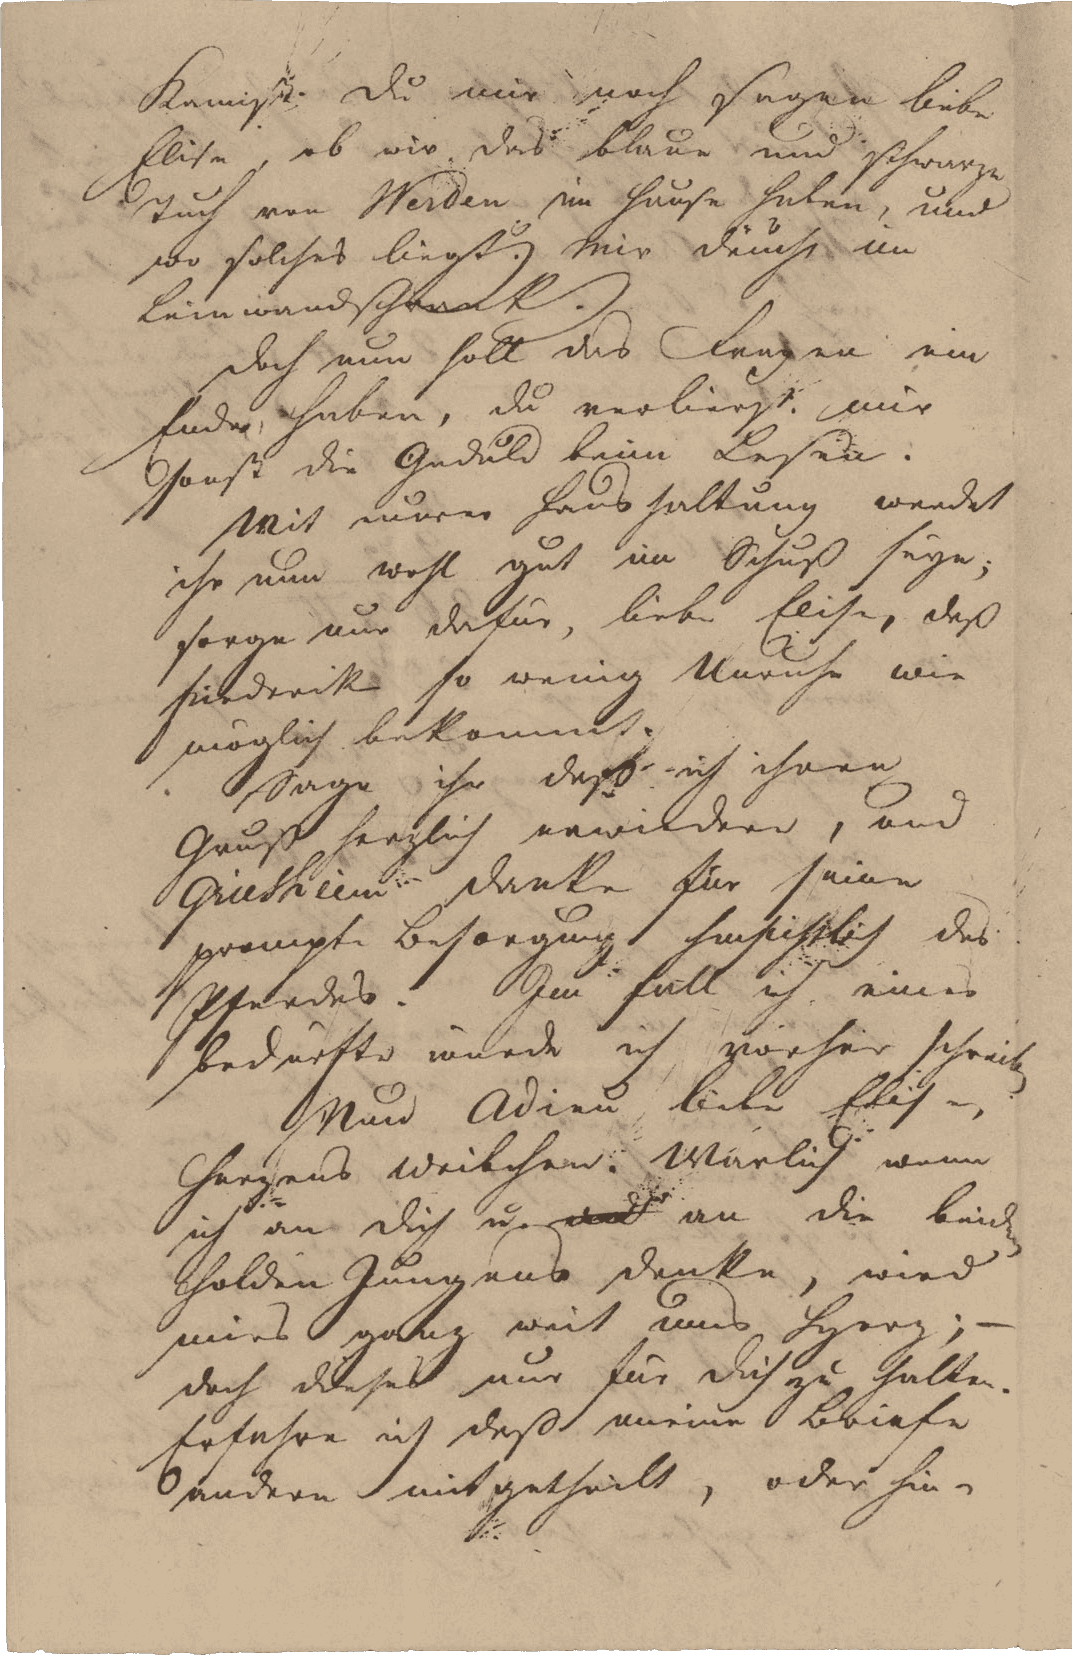 Kannst Du mir noch sagen liebe
Elise, ob wir das blaue und schwarze
Tuch von Werden im Hause haben, und
wo solches liegt? Mir däucht im
Leinwandschrank.
Doch nun soll das Fragen ein
Ende haben, du verlierst mir
sonst die Geduld beim Lesen.
Mit eurer Haushaltung werdet
ihr nun wohl gut im Schuß seyn;
sorge nur dafür, liebe Elise, daß
Friederike so wenig Unruhe wie
möglich bekommt.
Sage ihr daß ich ihren
Gruß herzlich erwiedere, und
Griesheim danke für seine
prompte Besorgung hinsichtlich des
Pferdes. Im Fall ich eines
bedürfte würde ich vorher schreiben
Nun Adieu liebe Elise,
Herzens Weibchen. Warlich wenn
ich an Dich u. an die beiden
holden Jungens denke, wird
mirs ganz weit ums Herz; –
doch dieses nur für Dich zu halten.
Erfahre ich daß meine Briefe
andern mitgetheilt, oder hin-